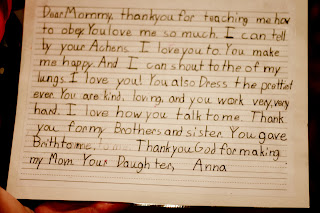 Dear Mommy, thankyou for teaching me how
to obey. You love me so much. I can tell
by your Achens. I love you to. You make
me happy. And I can shout to the of my
lungs I love you! You also Dress the prettiet
ever. You are kind, loving, and you work very, very
hard. I love how you talk to me. Thank
you for my Brothers and sister. You gave
Brith to me. Thankyou God for making
my Mom. Your Daughter, Anna